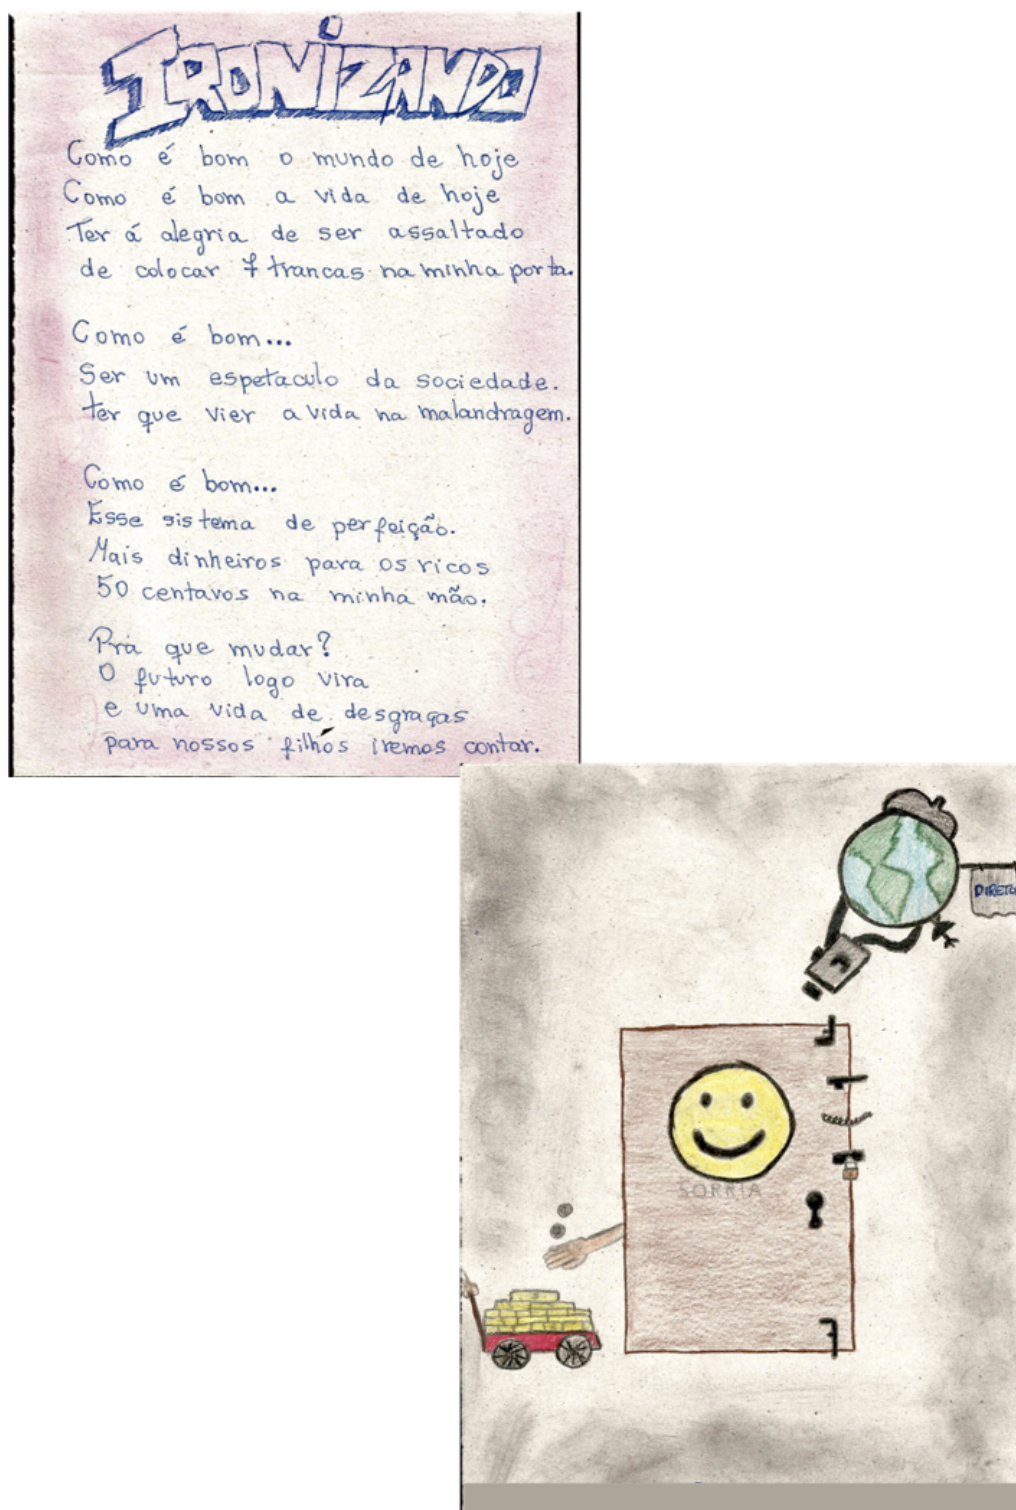 IRONIZANDO
Como é bom o mundo de hoje
Como é bom a vida de hoje
Ter á alegria de ser assaltado
de colocar 7 trancas na minha porta.
Como é bom...
Ser um espetaculo da sociedade.
ter que vier a vida na malandragem.
Como é bom...
Esse sistema de perfeição.
Mais dinheiros para os ricos
50 centavos na minha mão.
Pra que mudar?
O futuro logo vira
e uma vida de desgraças
para nossos filhos iremos contar.
SORRIA